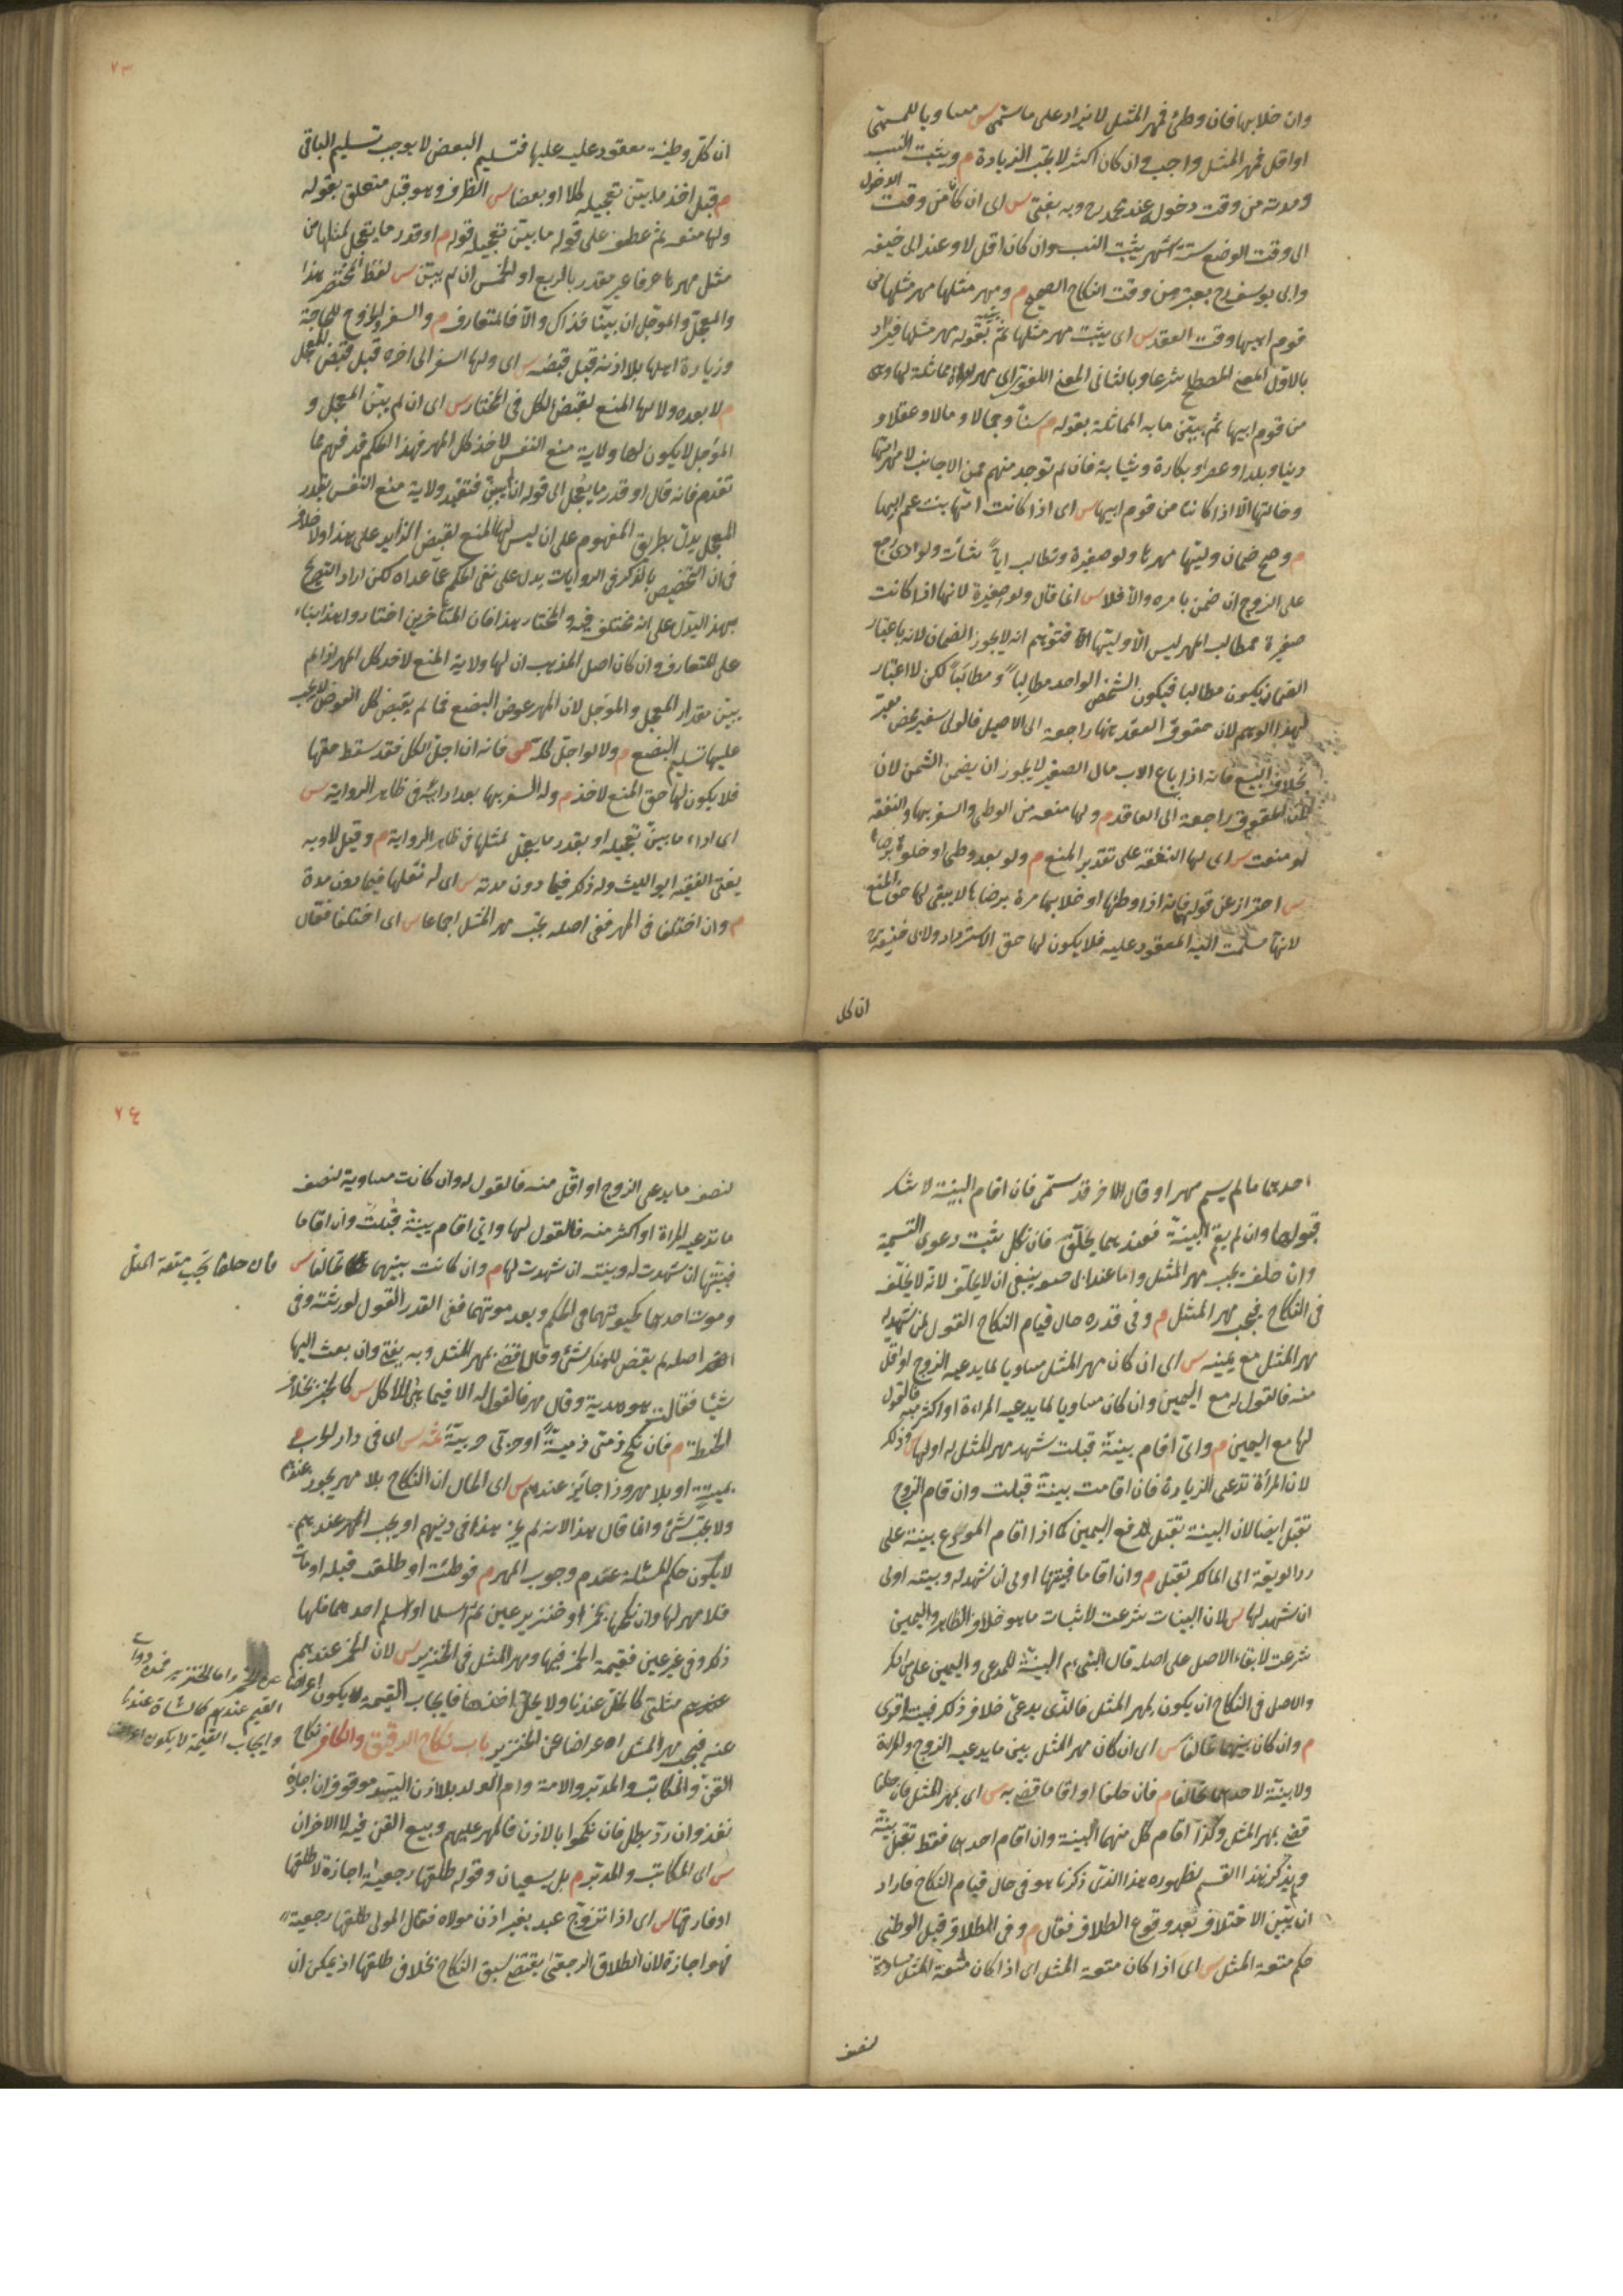 وان خلا بها فان وطئ فمهر المثل لا يزاد على ما سمى س مساويا للمسمى
او اقل فمهر المثل واجب وان كان اكثر لا يجب الزيادة م ويثبت النسب
ومدته من وقت دخوله عند محمد رح وبه يفتى س اى ان كان من وقت الدخول
الى وقت الوضع ستة اشهر يثبت النسب وان كان اقل لا وعند ابى حنيفه
وابى يوسف رح يعتبر من وقت النكاح الصحيح م ومهر مثلها مهر مثلها من
قوم ابيها وقت العقد س اى يثبت مهر مثلها ثم بينه بقوله مهر مثلها فيراد
بالاول المعنى المصطلح شرعا وبالثانى المعنى اللغوى اى مهر امراة مماثلة لها وهى
من قوم ابيها ثم يبين ما به المماثلة بقوله م سنا وجمالا ومالا وعقلا و
دينا وبلدا وعصرا وبكارة وثيابة فان لم توجد منهم فمن الاجانب لا مهر امها
وخالتها الا اذا كانتا من قوم ابيها س اى اذا كانت امها بنت عم ابيها
م وصح ضمان وليها مهرها ولو صغيرة وتطالب ايا شائت ولو ادى رجع
على الزوج ان ضمن بامره والا فلا س انما قال ولو صغيرة لانها اذا كانت
صغيرة فمطالب المهر ليس الا وليها فتوهم انه لا يجوز الضمان لانه باعتبار
الضمان يكون مطالبا فيكون الشخص الواحد مطالِباً ومطالَباً لكن لا اعتبار
لهذا الوهم لان حقوق العقد ههنا راجعة الى الاصيل فالولى سفير محض معبر
بخلاف البيع فانه اذا باع الاب مال الصغير لا يجوز ان يضمن الثمن لان
الحقوق راجعة الى العاقد م ولها منعه من الوطى والسفر بها والنفقة
لو منعت س اى لها النفقة على تقدير المنع م ولو بعد وطى او خلوة برضاها
س احتراز عن قولهما فانه اذا وطئها او خلا بها مرة برضاها لا يبقى لها حق المنع
لانها سلمت اليه المعقود عليه فلا يكون لها حق الاسترداد ولابى حنيفة رح
ان كل
٧٣
ان كل وطئة معقود عليه عليها فتسليم البعض لا يوجب تسليم الباقى
م قبل اخذ ما بين تعجيله كلا او بعضا س الظرف وهو قبل متعلق بقوله
ولها منعه ثم عطف على قوله ما بين تعجيله قوله م او قدر ما يعجل لمثلها من
مثل مهرها عرفا غير مقدر بالربع او الخمس ان لم يبين س لفظ المختصر هذا
والمعجل والمؤجل ان بينا فذاك والا فالمتعارف م والسفر والخروج للحاجة
وزيارة اهلها بلا اذنه قبل قبضه س اى ولها السفر الى اخره قبل قبض المعجل
م لا بعده ولا لها المنع لقبض الكل فى المختار س اى ان لم يبين المعجل و
المؤجل لا يكون لها ولاية منع النفس لاخذ كل المهر فهذا الحكم قد فهم مما
تقدم فانه قال او قدر ما يعجل الى قوله ان لم يبين فتقييد ولاية منع النفس بقدر
المعجل يدل بطريق المفهوم على ان ليس لها المنع لقبض الزايد على هذا ولا خلاف
فى ان التخصيص بالذكر فى الروايات يدل على نفى الحكم عما عداه لكن اراد التصريح
بهذا ليدل على انه مختلف فيه والمختار هذا فان المتأخرين اختاروا هذا بناء
على المتعارف وان كان اصل المذهب ان لها ولاية المنع لاخذ كل المهر اذا لم
يبين مقدار المعجل والمؤجل لان المهر عوض البضع فما لم يقبض كل العوض لا يجب
عليها تسليم البضع م ولا لو اجل كله س فانه ان اجل الكل فقد سقط حقها
فلا يكون لها حق المنع لاخذ م وله السفر بها بعد ادائه فى ظاهر الرواية س
اى اداء ما بين تعجيله او بقدر ما يعجل لمثلها فى ظاهر الرواية م وقيل لا وبه
يفتى الفقيه ابو الليث وله ذكر فيما دون مدته س اى له نقلها فيما دون مدة
م وان اختلفا فى المهر ففى اصله يجب مهر المثل اجماعا س اى اختلفا فقال
احدهما ما لم يسم مهر او قال الاخر قد سمى فان اقام البينة لا شك
قبولها وان لم يقم البينة فعندهما يحلف فان نكل يثبت دعوى التسمية
وان حلف يجب مهر المثل واما عند ابى حنيفة ينبغى ان لا يحلف لانه لا يحلف
فى النكاح فيجب مهر المثل م وفى قدره حال قيام النكاح القول لمن شهد له
مهر المثل مع يمينه س اى ان كان مهر المثل مساويا لما يدعيه الزوج او اقل
منه فالقول له مع اليمين وان كان مساويا لما يدعيه المراءة او اكثر منه فالقول
لها مع اليمين م واى اقام بينة قبلت شهد مهر المثل له او لها س وذلك
لان المرأة تدعى الزيادة فان اقامت بينة قبلت وان اقام الزوج
تقبل ايضا لان البينة تقبل لدفع اليمين كما اذا اقام المودع بينة على
رد الوديعة الى المالك تقبل م وان اقاما فبينتها اولى ان شهد له وبينته اولى
ان شهد لها س لان البينات شرعت لاثبات ما هو خلاف الظاهر واليمين
شرعت لابقاء الاصل على اصله قال النبى عم البينة للمدعى واليمين على من انكر
والاصل فى النكاح ان يكون بمهر المثل فالذى يدعى خلاف ذلك فبينته اقوى
م وان كان بينهما تحالفا س اى ان كان مهر المثل بين ما يدعيه الزوج والمراة
ولا بينة لاحدهما تحالفا م فان حلفا او اقاما قضى به س اى بمهر المثل فان حلفا
قضى بمهر المثل وكذا اقام كل منهما البينة وان اقام احدهما فقط تقبل بينة
ولم يذكر هذا القسم لظهوره هذا الذى ذكرنا هو فى حال قيام النكاح فاراد
ان يبين الاختلاف بعد وقوع الطلاق فقال م وفى الطلاق قبل الوطى
حكم متعة المثل س اى اذا كان متعة المثل اى اذا كان متعة المثل مساوية
لنصف
٧٤
لنصف ما يدعى الزوج او اقل منه فالقول له وان كانت مساوية لنصف
ما تدعيه المراة او اكثر منه فالقول لها واى اقام بينة قبلت وان اقاما
فبينتها ان شهدت له وبينته ان شهدت لها م وان كانت بينهما تحالفا س
فان حلفا يجب متعة المثل
وموت احدهما كحيوتهما فى الحكم وبعد موتهما ففى القدر القول لورثته وفى
اصله لم يقض للمنكر بشئ وقالا قضى بمهر المثل وبه يفتى وان بعث اليها
شيئا فقالت هو هدية وقال مهر فالقول له الا فيما هئ للاكل س كالخبز بخلاف
الحنطة م فان نكح ذمى ذمية او حربى حربية ثمه س اى فى دار الحرب م
بميتة او بلا مهر وذا جائز عندهم س اى الحال ان النكاح بلا مهر يجوز عندهم
ولا يجب شئ وانما قال هذا لانه لم يجز هذا فى دينهم او يجب المهر عندهم
لا يكون حكم المسئلة عدم وجوب المهر م فوطئت او طلقت قبله او مات
فلا مهر لها وان نكحها بخمر او خنزير عين ثم اسلما او اسلم احدهما فلها
ذلك وفى غير عين فقيمة الخمر فيها ومهر المثل فى الخنزير س لان الخمر عندهم
مثلى كالخل عندنا ولا يحل اخذها فايجاب القيمة لا يكون اعراضا
عن الخمر واما الخنزير فمن ذوات
القيم عندهم كالشاة عندنا
وايجاب القيمة لا يكون اعراضا
عنه فيجب مهر المثل اعراضا عن الخنزير باب نكاح الرقيق والكافر نكاح
القن والمكاتب والمدبر والامة وام الولد بلا اذن السيد موقوف ان اجاز
نفذ وان رد بطل فان نكحوا بالاذن فالمهر عليهم وبيع القن فيه لا الاخران
س اى المكاتب والمدبر م بل يسعيان وقوله طلقها رجعية اجازة لا طلقها
او فارقها س اى اذا تزوج عبد بغير اذن مولاه فقال المولى طلقها رجعية
فهو اجازة لان الطلاق الرجعى يقتضى سبق النكاح بخلاف طلقها اذ يمكن ان